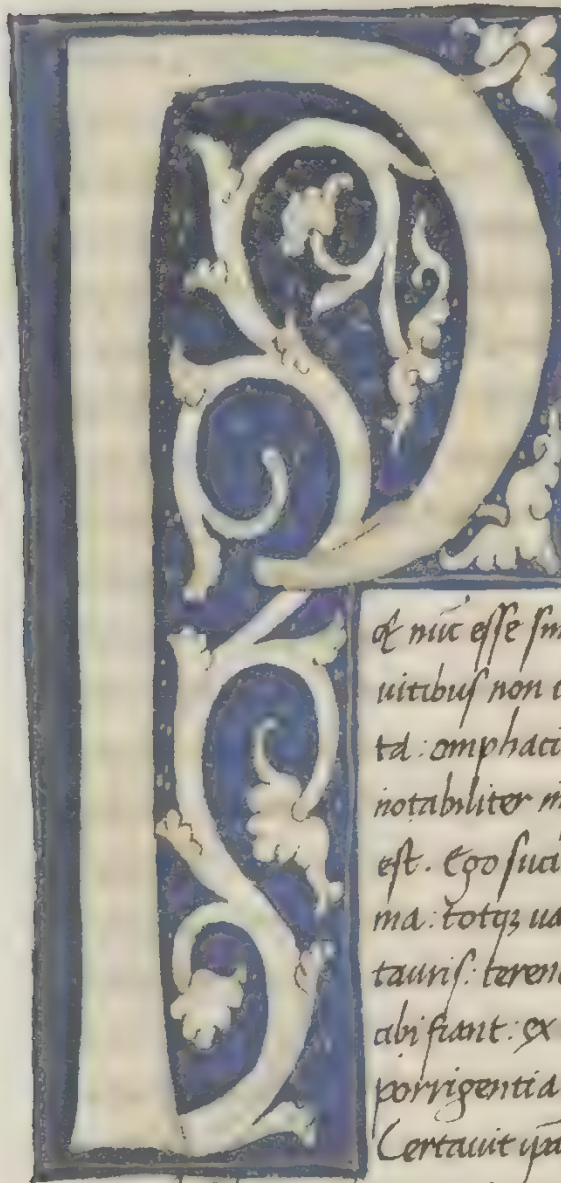 P
& nūc esse
uitibus non
ta: omphaci
notabiliter
est. Ego suci
ma: totqȝ ua
tauris: teren
ubi fiant: ex
porrigentia
Certauit